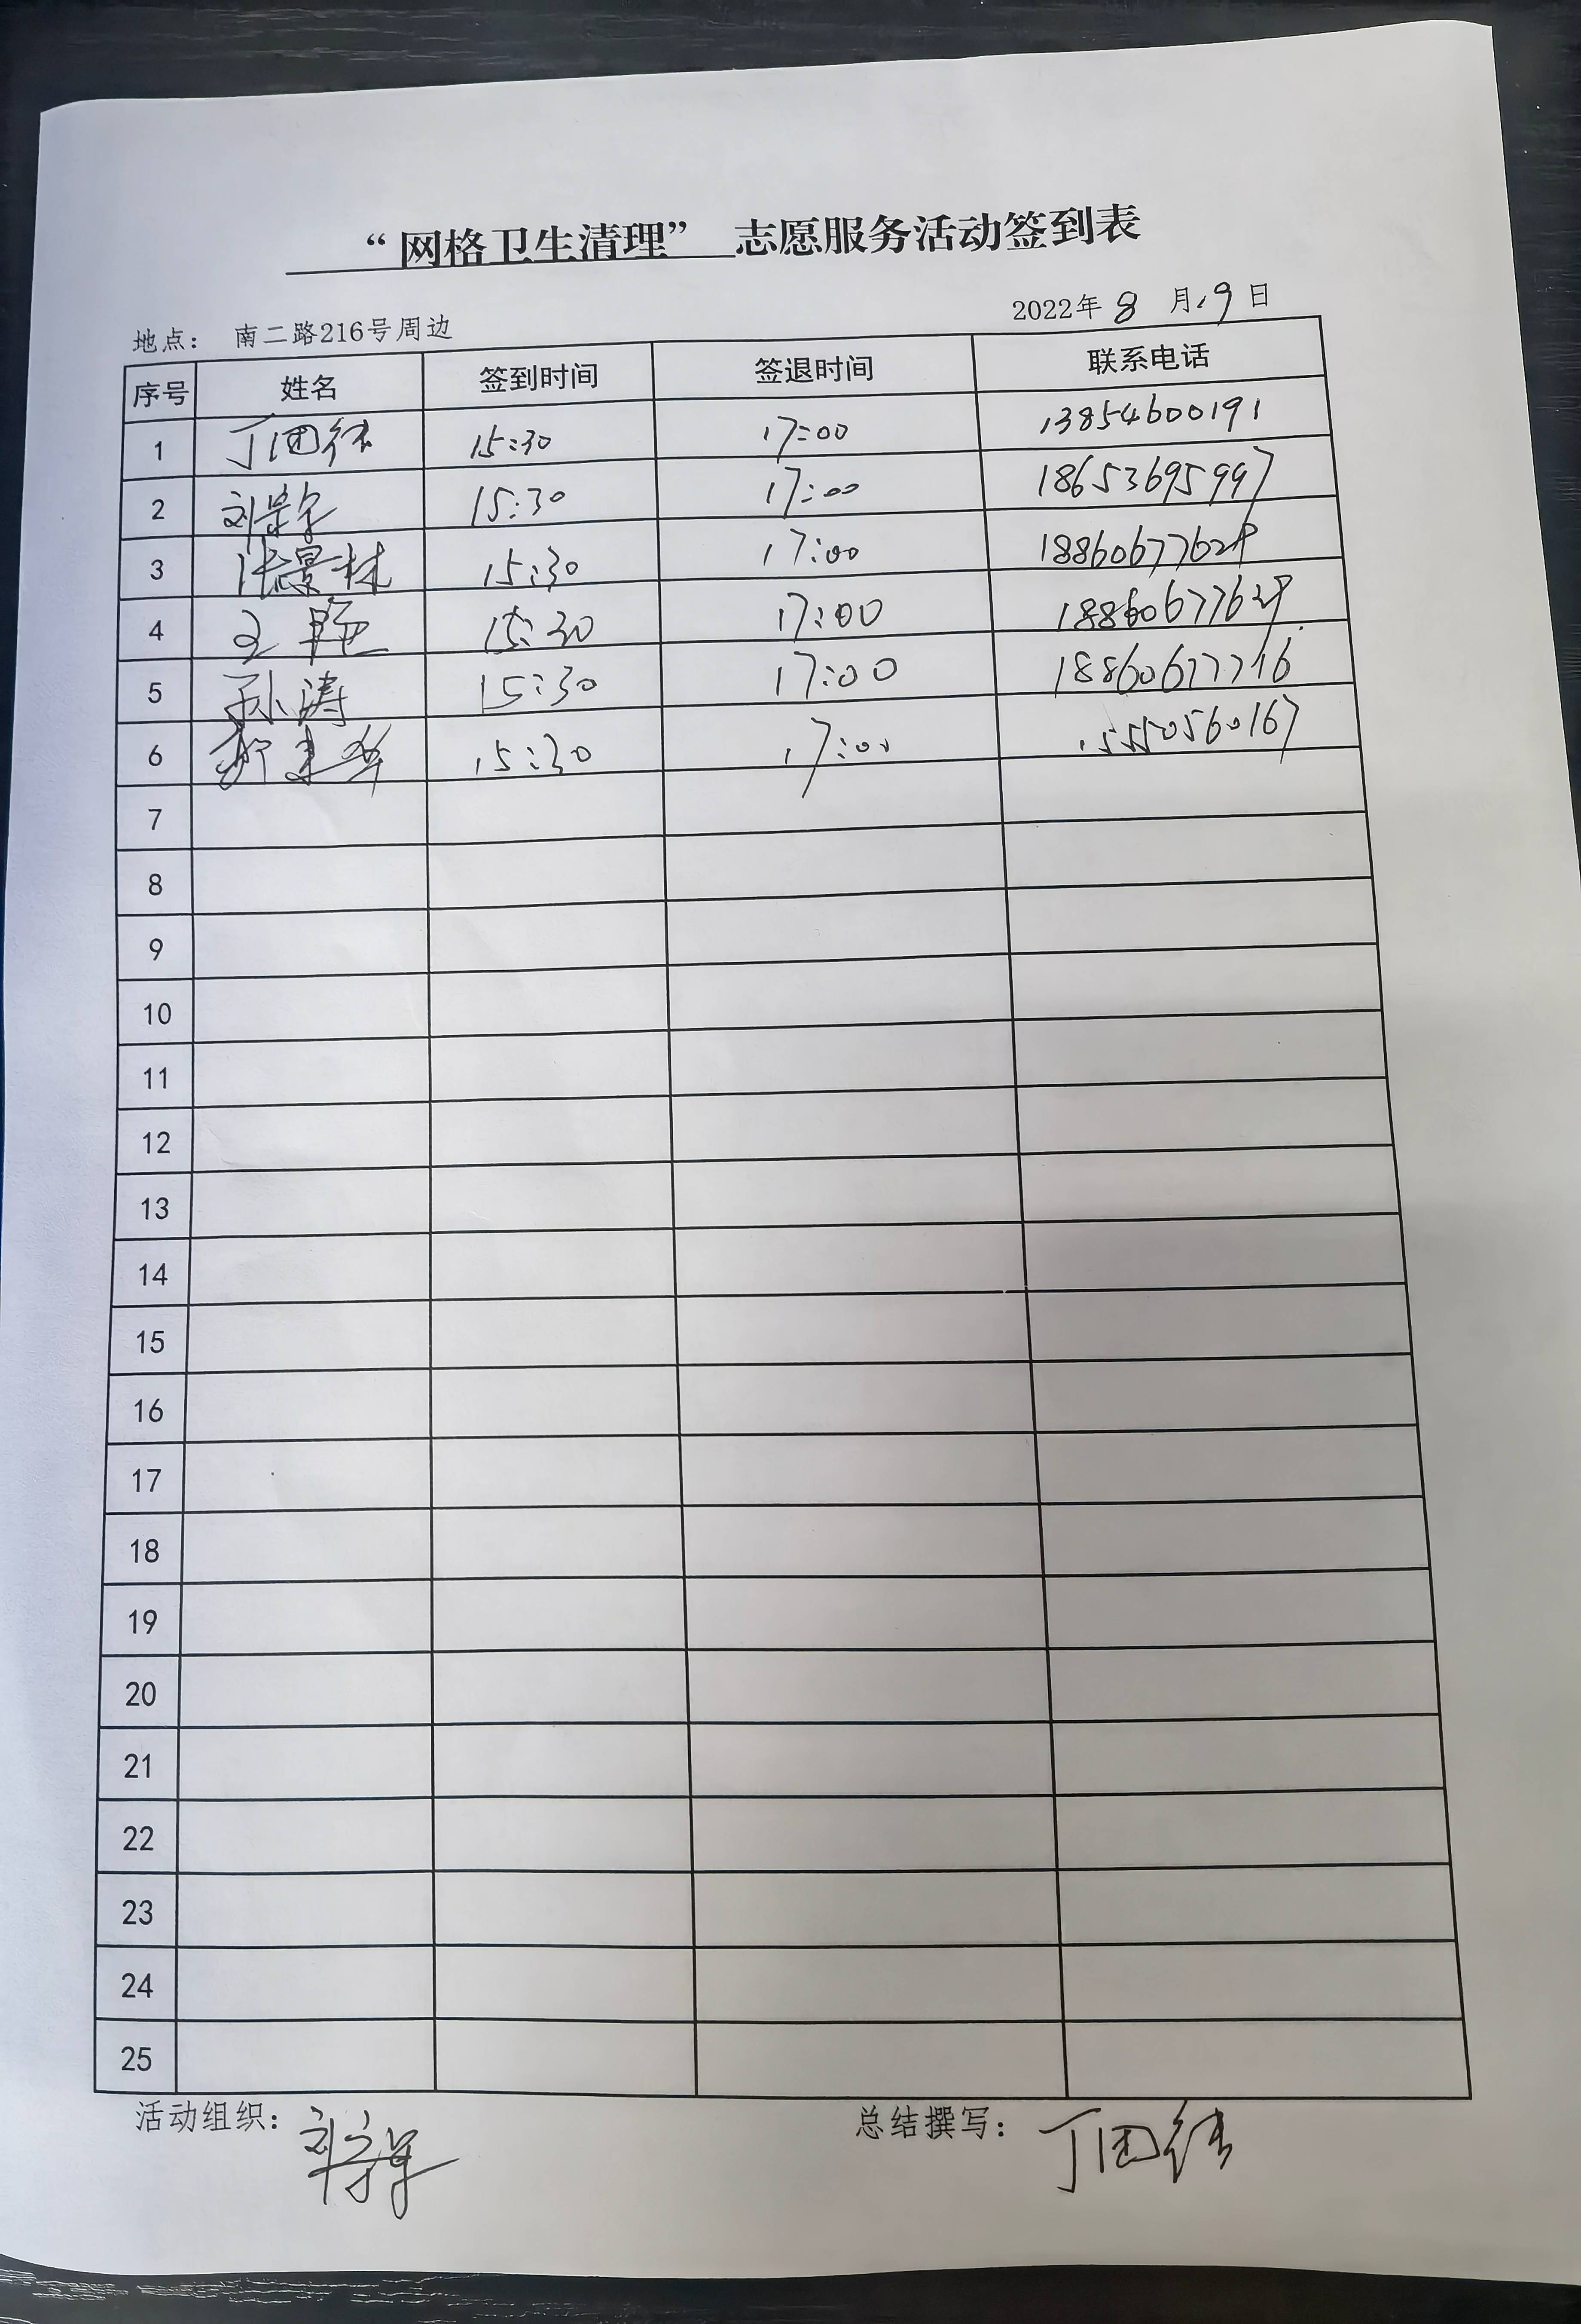 “网格卫生清理” 志愿服务活动签到表
地点： 南二路216号周边 2022年 8 月 19 日
序号 姓名 签到时间 签退时间 联系电话
1 15:30 17:00 13854600191
2 15:30 17:00 18653695997
3 张景林 15:30 17:00 18860677629
4 王艳 15:30 17:00 18860677629
5 孙涛 15:30 17:00 18860677716
6 15:30 17:00 15550560167
7
8
9
10
11
12
13
14
15
16
17
18
19
20
21
22
23
24
25
活动组织： 总结撰写：